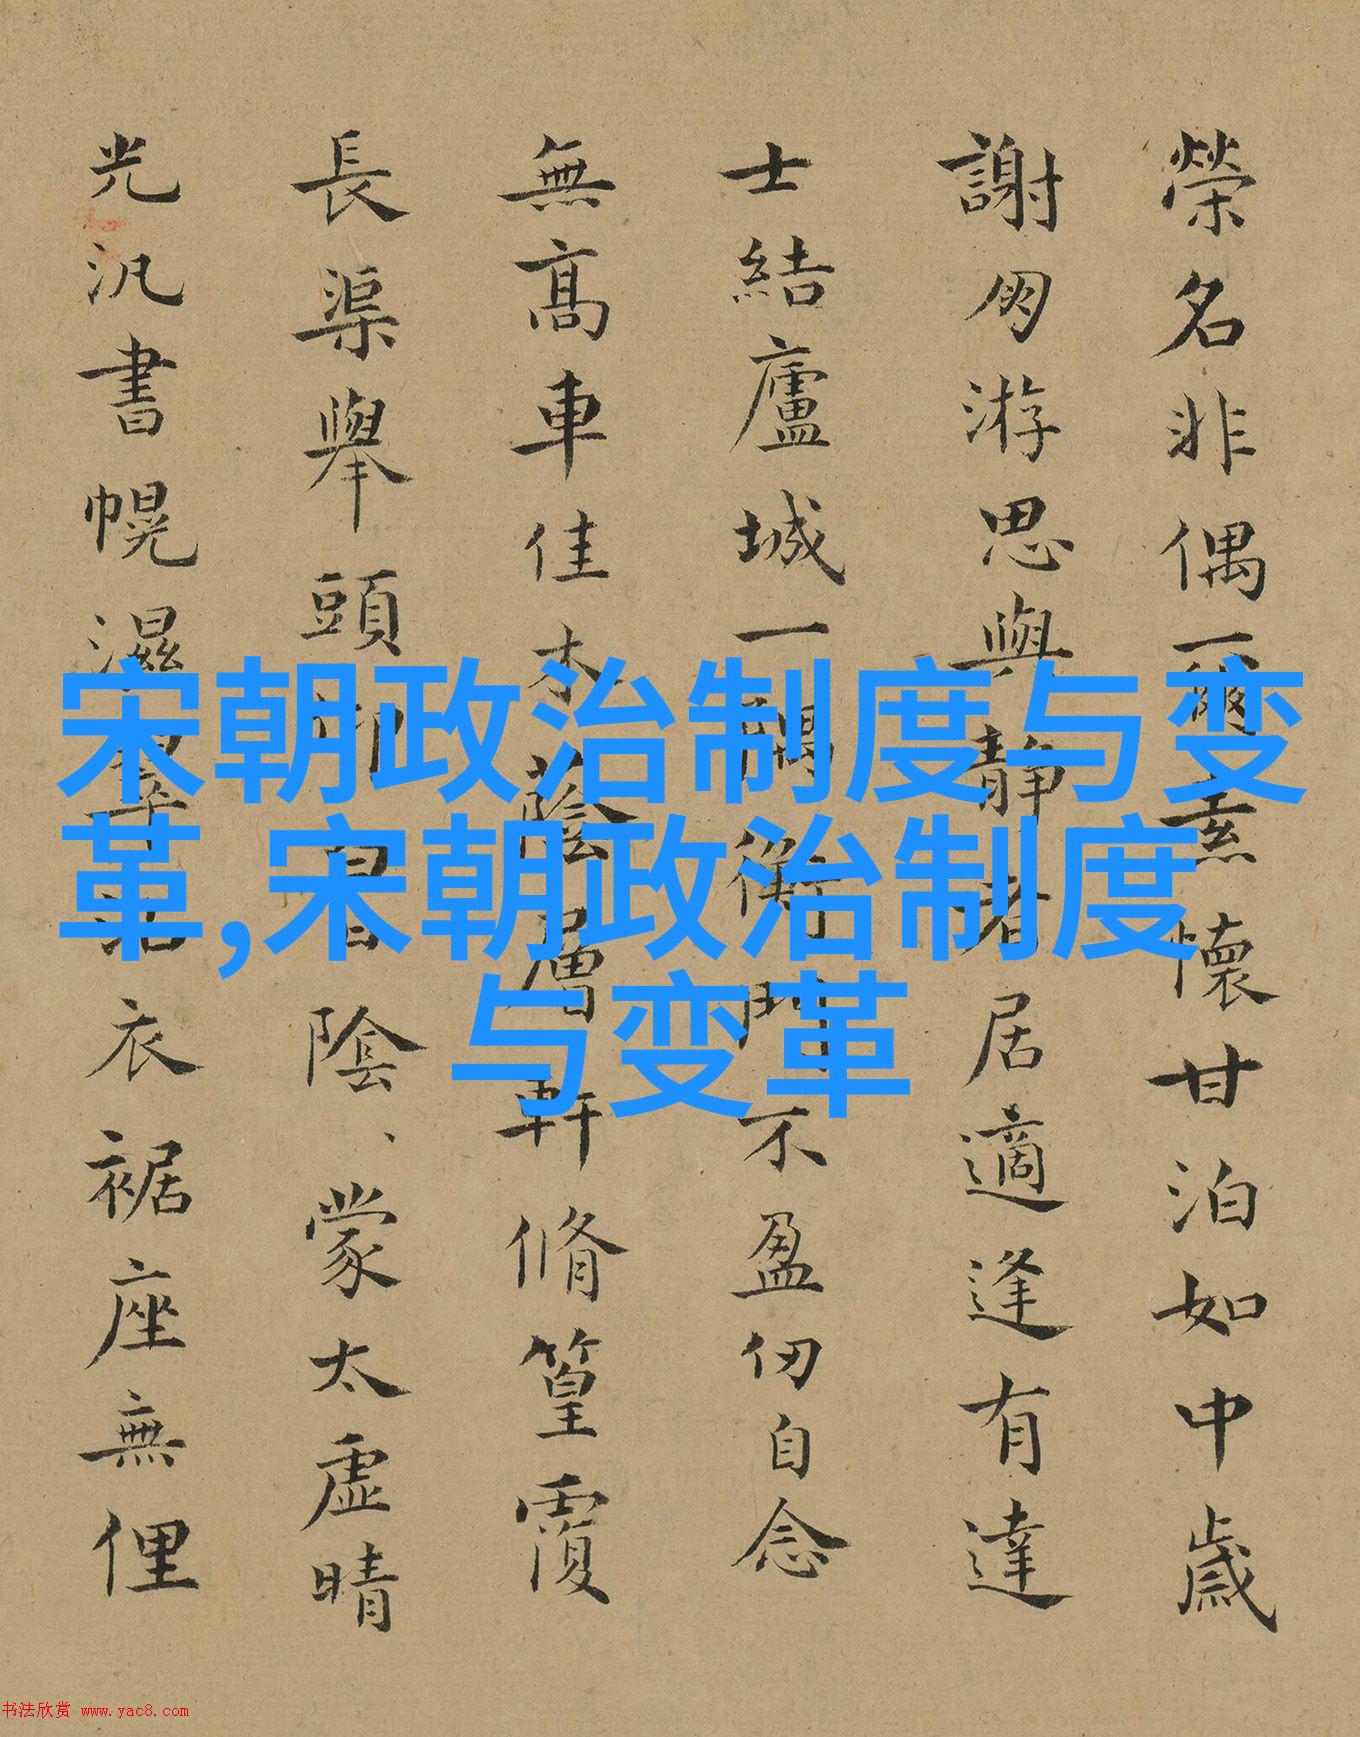 宋朝政治制度与变
革,宋朝政治制度
与变革
榮名非偶爾素懷甘泊如中歲
謝朋游思與靜者居適逢有達
士結廬城一隅衡門不盈仞自念
無髙車佳木蔭層軒脩篁覆
長渠舉頭陰、蒙太虛晴
光汎書幌濕翠衣裾座無俚
书法欣赏 www.yac8.com